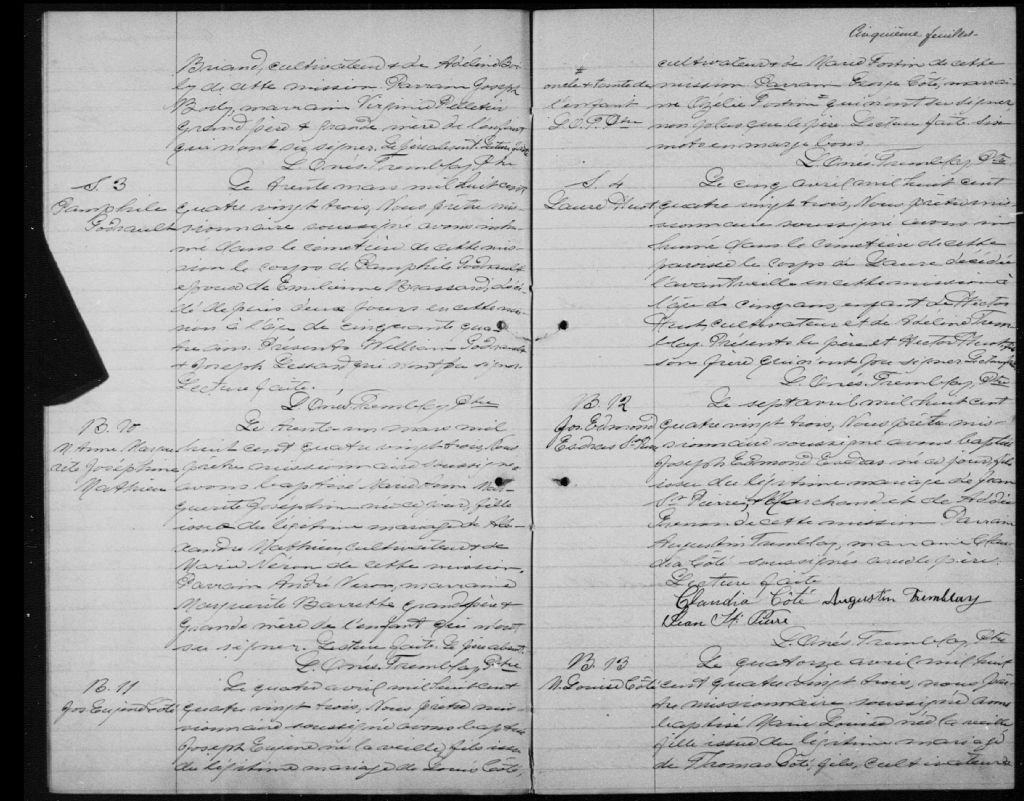 Briand, cultivateur & de Adéline Bo-
ly de cette mission. Parrain Joseph
Boly, marraine Virginie Pelletier
grand père & grande mère de l'enfant
qui n'ont su signer. Le père absent. Lecture faite
L. Onés. Tremblay, Ptre
S. 3
Pamphile
Godreault
Le trente mars mil huit cent
quatre vingt trois, Nous prêtre mis-
sionnaire soussigné avons inhu-
mé dans le cimetière de cette mis-
sion le corps de Pamphile Godreault
époux de Emilienne Brassard, décé-
dé depuis deux jours en cette mis-
sion à l'âge de cinquante qua-
tre ans. Présents William Godreault
& Joseph Lessard qui n'ont pu signer
Lecture faite.
L. Onés. Tremblay, Ptre
B. 10
M. Anne Margue
rite Joséphine
Mathieu
Le trente un mars mil
huit cent quatre vingt trois, Nous
prêtre missionnaire soussigné
avons baptisé Marie Anne Mar-
guerite Joséphine née ce jour, fille
issue du légitime mariage de Ale-
xandre Mathieu, cultivateur & de
Marie Néron de cette mission.
Parrain André Néron, marraine
Marguerite Barrette grand père &
grande mère de l'enfant qui n'ont
su signer. Lecture faite. Le père absent.
L. Onés. Tremblay, Ptre
B. 11
Jos Eugène Côté
Le quatre avril mil huit cent
quatre vingt trois, Nous prêtre mis-
sionnaire soussigné avons baptisé
Joseph Eugène né la veille, fils issu
du légitime mariage de Louis Côté,
Cinquième feuillet
oncle & tante de
l'enfant
L. O. T. Ptre
cultivateur & de Marie Fortin de cette
mission Parrain George Côté, marrai-
ne Ozélie Fortin qui n'ont su signer
non plus que le père. Lecture faite. Six
mots en marge bons.
L. Onés. Tremblay, Ptre
S. 4
Laure Huot
Le cinq avril mil huit cent
quatre vingt trois, Nous prêtre mis-
sionnaire soussigné avons in-
humé dans le cimetière de cette
paroisse le corps de Laure décédée
l'avant veille en cette mission à
l'âge de cinq ans, enfant de Victor
Huot, cultivateur et de Adéline Trem-
blay. Présents le père et Hector Huot
son frère qui n'ont pu signer. Lecture faite
L. Onés. Tremblay, Ptre
B. 12
Jos. Edmond
Esdras St Pierre
Le sept avril mil huit cent
quatre vingt trois, Nous prêtre mis-
sionnaire soussigné avons baptisé
Joseph Edmond Esdras né ce jour, fils
issu du légitime mariage de Jean
St Pierre, Marchand et de
de cette mission Parrain
Augustin Tremblay, marraine Clau-
dia Côté soussignés avec le père.
Lecture faite
Claudia Côté Augustin Tremblay
Jean St Pierre
L. Onés. Tremblay, Ptre
B. 13
M. Louise Côté
Le quatorze avril mil huit
cent quatre vingt trois, nous prê-
tre missionnaire soussigné avons
baptisé Marie Louise née la veille
fille issue du légitime mariage
de Thomas Côté, fils, cultivateur &